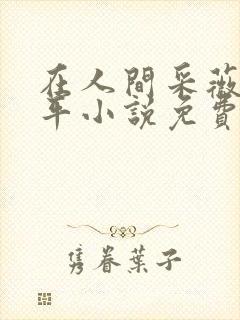 在人間采薇
年小說免費
隽眷葉子